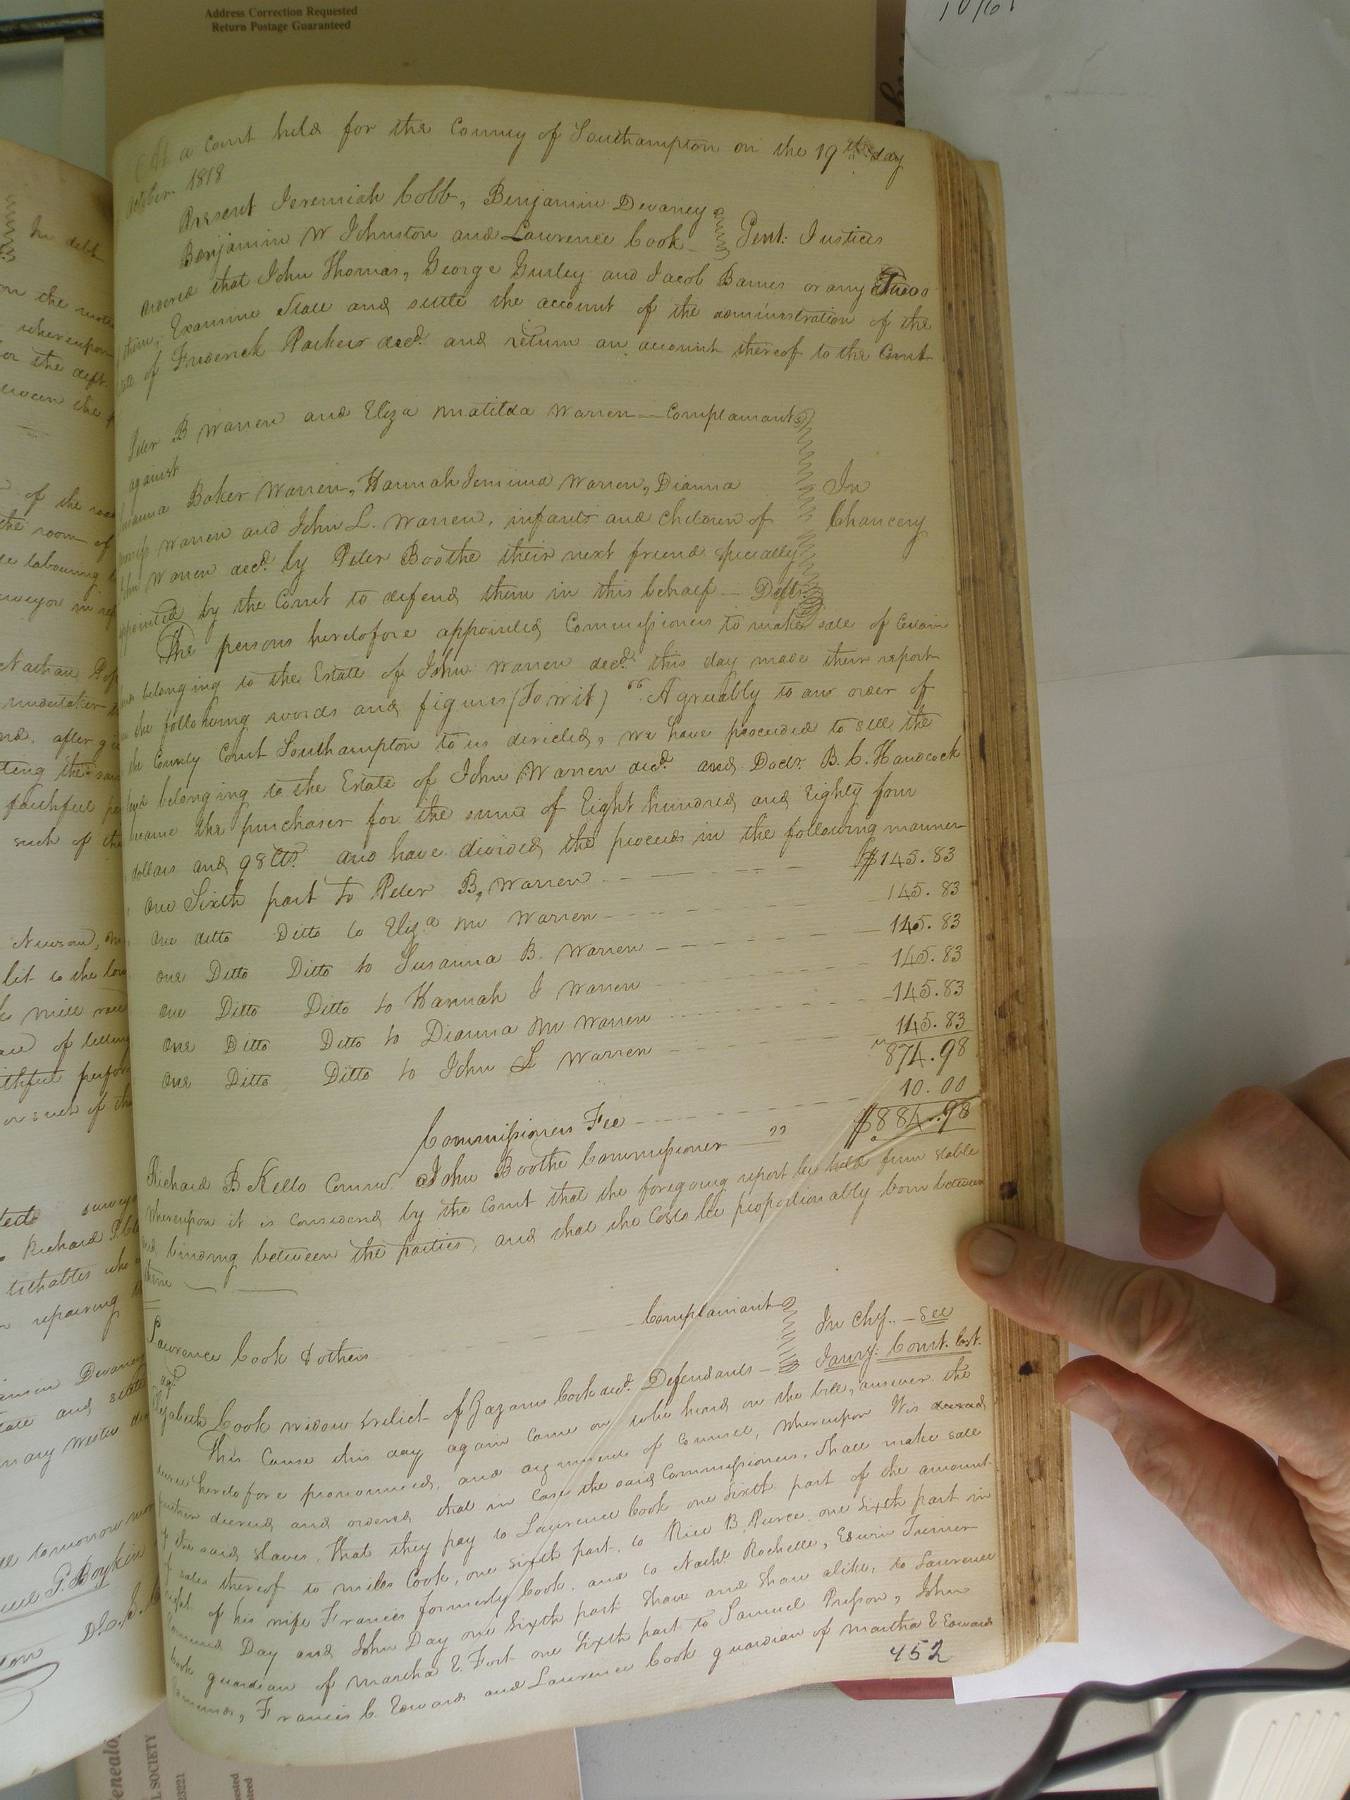 Address Correction Requested
Return Postage Guaranteed
10/61
At a Court held for the County of Southampton on the 19th day
October 1818
Present Jeremiah Cobb, Benjamin Devaney
Benjamin W Johnston and Lawrence Cook
Gent: Justices
ordered that John Thomas, George Gurley and Jacob Barnes or any Two o
them, Examine State and settle the account of the administration of the
of Frederick Parker decd. and return an account thereof to the Court
Peter B Warren and Eliza Matilda Warren — Complainants
against
Baker Warren, Hannah Jemima Warren, Dianna
In
Warren and John L. Warren, infants and Children of
Chancery
John Warren decd. by Peter Boothe their next friend specially
appointed by the Court to defend them in this behalf — Defts.
The persons heretofore appointed Commissioners to make sale of Certain
belonging to the Estate of John Warren decd. this day made their report
in the following words and figures (Towit) "Agreably to an order of
the County Court Southampton to us directed, we have proceeded to sell the
land belonging to the Estate of John Warren decd. and Doctr. B. C. Handcock
became the purchaser for the sum of Eight hundred and Eighty four
dollars and 98 Cts. and have divided the proceeds in the following manner
one Sixth part to Peter B, Warren $145.83
one ditto Ditto to Eliza M Warren 145.83
one Ditto Ditto to Susanna B. Warren 145.83
one Ditto Ditto to Hannah J Warren 145.83
one Ditto Ditto to Dianna M Warren 145.83
one Ditto Ditto to John L Warren 145.83
874.98
Commissioners Fee 10.00
$884.98
Richard B Kello Comr. John Boothe Commissioner "
Whereupon it is Considered by the Court that the foregoing report be held firm stable
and binding between the parties, and that the Costs be propotionably born between
them
Lawrence Cook & others Complainants
In Chy. — see
agt.
Jany: Court last.
Elizabeth Cook widow & relict of Lazarus Cook decd. Defendants
This Cause this day again came on to be heard on the bill, answer the
decree heretofore pronounced, and argument of Counsel, Whereupon It is decreed
further decreed and ordered that in Case the said Commissioners, shall make sale
of the said slaves, that they pay to Lawrence Cook one sixth part of the amount
of sales thereof to Miles Cook, one sixth part, to Rice B. Pierce one sixth part in
right of his wife Frances formerly Cook, and to Nathl. Rochelle, Edwin Turner
Day and John Day one sixth part share and share alike, to Lawrence
Cook guardian of Martha E Fort one sixth part to Samuel Presson, John
Francis C. Edwards and Lawrence Cook guardian of Martha E Edwards
452
In debt
on the motion
whereupon
for the deft.
between the p
of the
the room of
labouring
surveyor in
undertaker
after g
faithful
such of the
Newsom,
let to the
mill race
of letting
or such of the
surveyor
Richard
tithables who
repairing
Devaney
and state
tomorrow
G. Boykin
D.C.
SOCIETY
23221